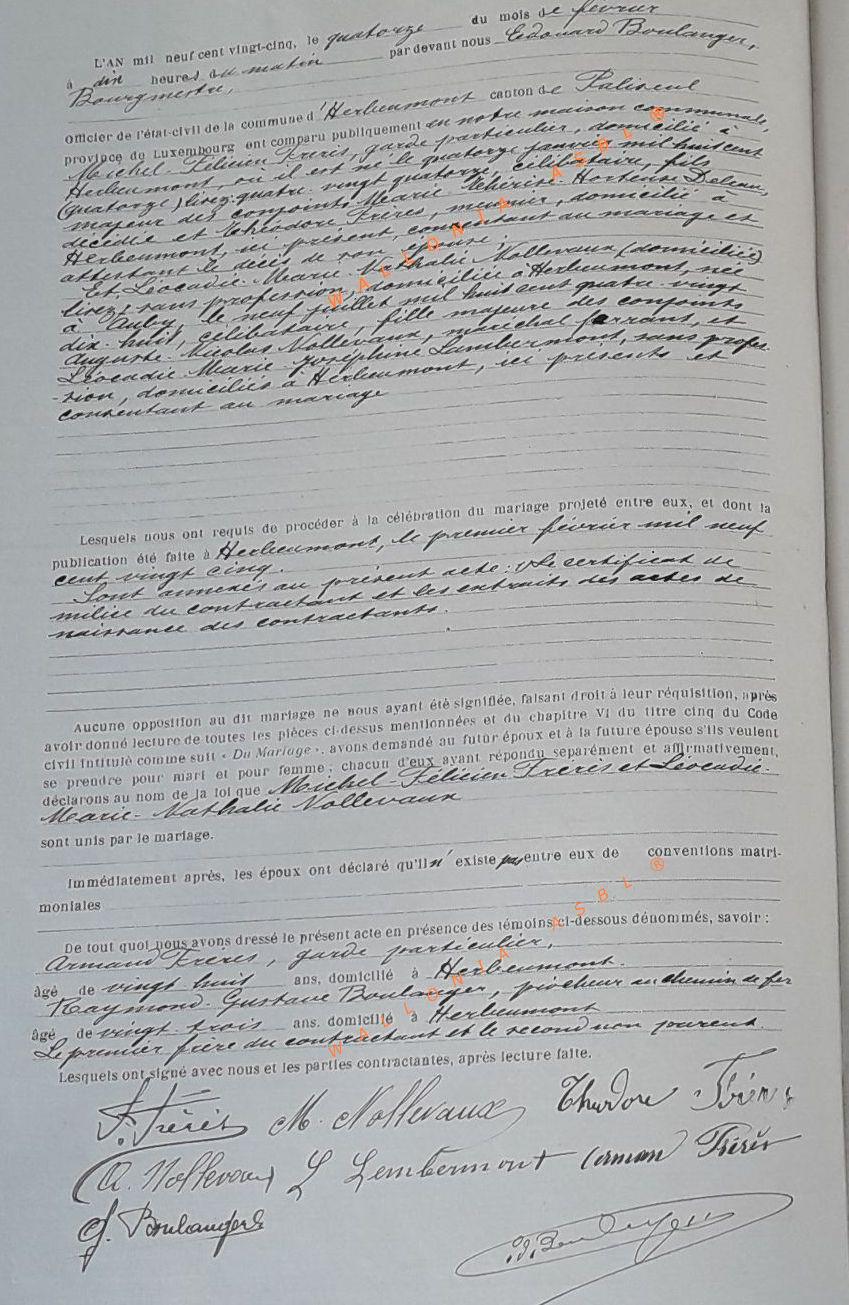 L'AN mil neuf cent vingt-cinq, le quatorze du mois de février
à dix heures au matin par devant nous Edouard Boulanger,
Bourgmestre,
Officier de l'état-civil de la commune d'Herbeumont canton de Paliseul
province de Luxembourg ont comparu publiquement en notre maison communale,
Michel-Félicien Frérès, garde particulier, domicilié à
Herbeumont, où il est né le quatorze janvier mil huit cent
(quatorze) lisez: quatre-vingt quatorze, célibataire, fils
majeur des conjoints Marie-Thérèse-Hortense Deleau,
décédée et Théodore Frérès, meunier, domicilié à
Herbeumont, ici présent, consentant au mariage et
attestant le décès de son épouse;
Et Léocadie-Marie-Nathalie Nollevaux (domiciliée)
lisez: sans profession, domiciliée à Herbeumont, née
à Auby, le neuf juillet mil huit cent quatre-vingt
dix-huit, célibataire, fille majeure des conjoints
Auguste-Nicolas Nollevaux, maréchal ferrant, et
Léocadie-Marie-Joséphine Lambermont, sans profes-
-sion, domiciliés à Herbeumont, ici présents et
consentant au mariage
Lesquels nous ont requis de procéder à la célébration du mariage projeté entre eux, et dont la
publication été faite à Herbeumont, le premier février mil neuf
cent vingt cinq.
Sont annexés au présent acte: le certificat de
milice du contractant et les extraits des actes de
naissance des contractants.
Aucune opposition au dit mariage ne nous ayant été signifiée, faisant droit à leur réquisition, après
avoir donné lecture de toutes les pièces ci-dessus mentionnées et du chapitre VI du titre cinq du Code
civil intitulé comme suit « Du Mariage », avons demandé au futur époux et à la future épouse s'ils veulent
se prendre pour mari et pour femme; chacun d'eux ayant répondu separément et affirmativement,
déclarons au nom de la loi que Michel-Félicien Frérès et Léocadie-
Marie-Nathalie Nollevaux
sont unis par le mariage.
Immédiatement après, les époux ont déclaré qu'il n'existe pas entre eux de conventions matri-
moniales
De tout quoi nous avons dressé le présent acte en présence des témoins ci-dessous dénommés, savoir:
Armand Frérès, garde particulier,
âgé de vingt huit ans, domicilié à Herbeumont.
Raymond-Gustave Boulanger, piocheur au chemin de fer
âgé de vingt-trois ans. domicilié à Herbeumont
Le premier frère du contractant et le second non parent.
Lesquels ont signé avec nous et les parties contractantes, après lecture faite.
F. Frérès M. Nollevaux Théodore Frérès
A. Nollevaux L Lambermont Arman Frérès
G. Boulanger Ed. Boulanger
WALLONIA ASBL ®
WALLONIA ASBL ®